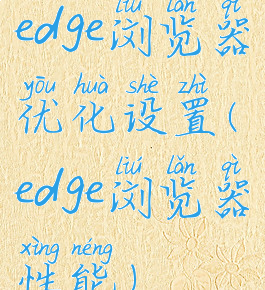 liú lǎn qì
edge浏览器
yōu huà shè zhì
优化设置(
liú lǎn qì
edge浏览器
xìng néng
性能)